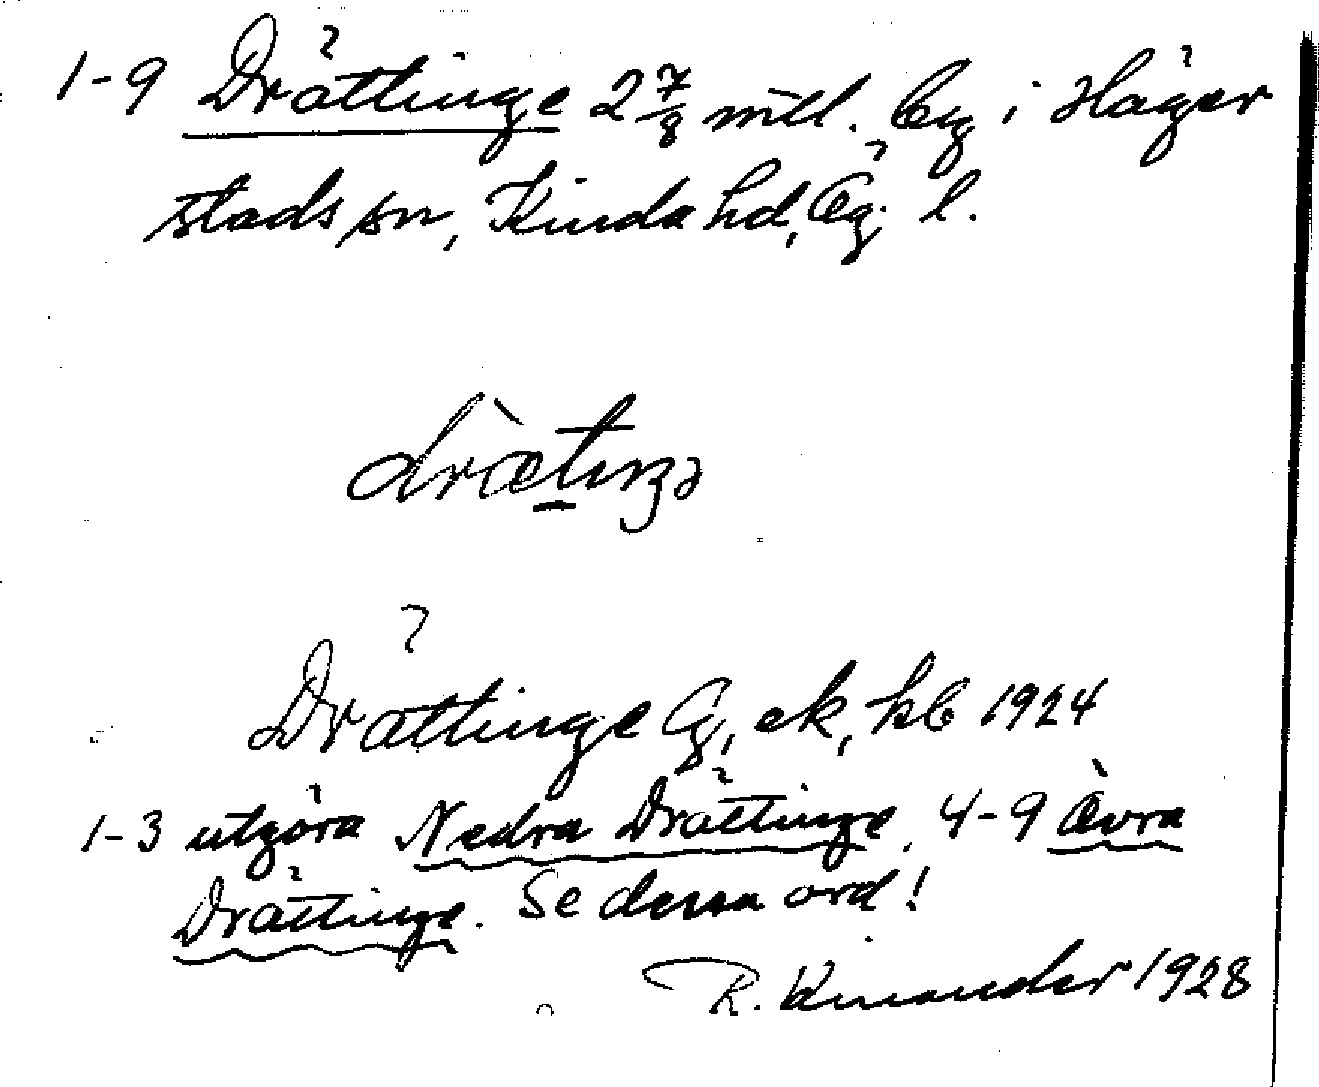 1-9 Drättinge 2 7/8 mtl. By i Häger
stads sn, Kinda hd, Ög. l.
dræ̀tiŋə
Drättinge By, ek, kb 1924
1-3 utgöra Nedra Drättinge, 4-9 Övra
Drättinge. Se dessa ord!
R. Kinander 1928